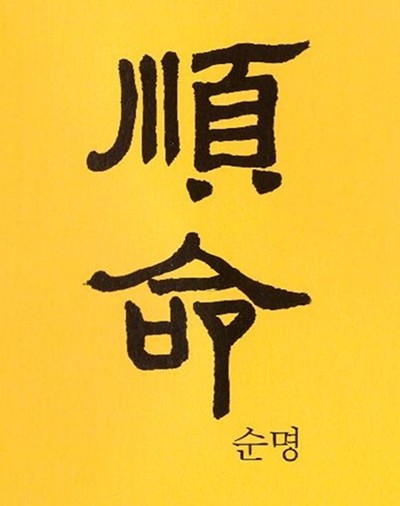 順
命
순명